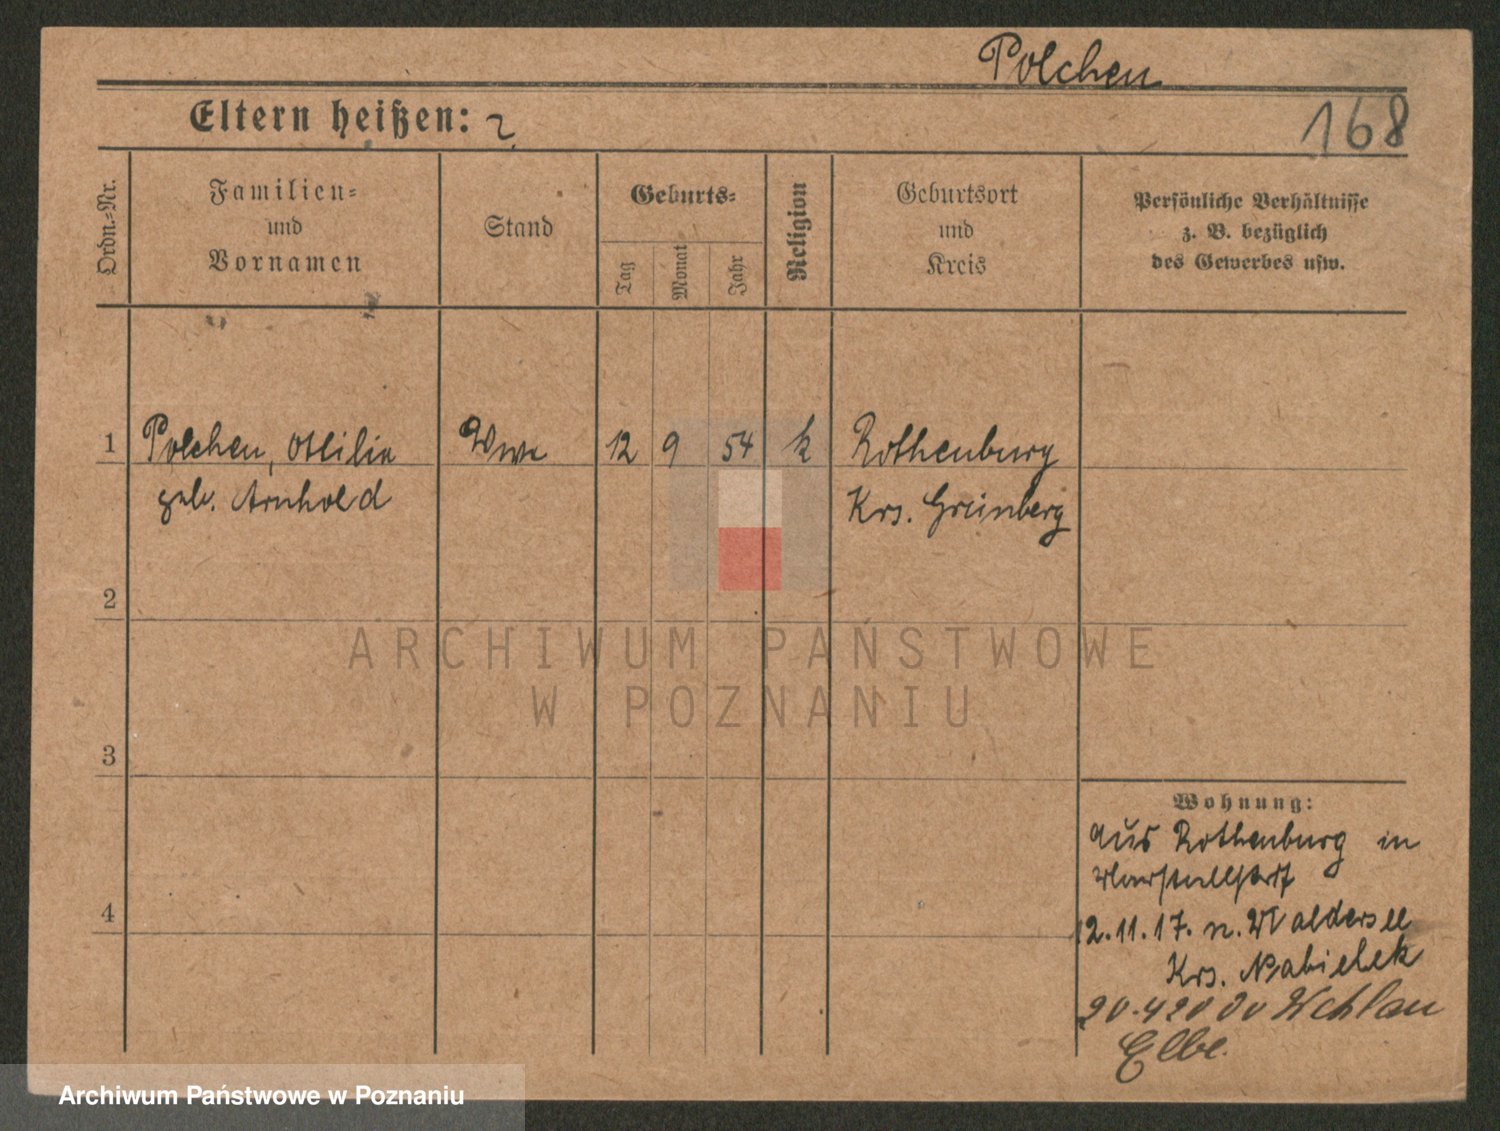 Polchen
Eltern heißen: ?
168
Ordn.-Nr.
Familien-
und
Vornamen
Stand
Geburts-
Tag
Monat
Jahr
Religion
Geburtsort
und
Kreis
Persönliche Verhältnisse
z. B. bezüglich
des Gewerbes usw.
1
Polchen, Ottilie
geb. Arnhold
Wwe
12
9
54
k
Rothenburg
Krs. Grünberg
2
3
4
Wohnung:
aus Rothenburg in
12.11.17. n. Waldersee
Krs.
20.4 20
Elbe.
ARCHIWUM PAŃSTWOWE
W POZNANIU
Archiwum Państwowe w Poznaniu